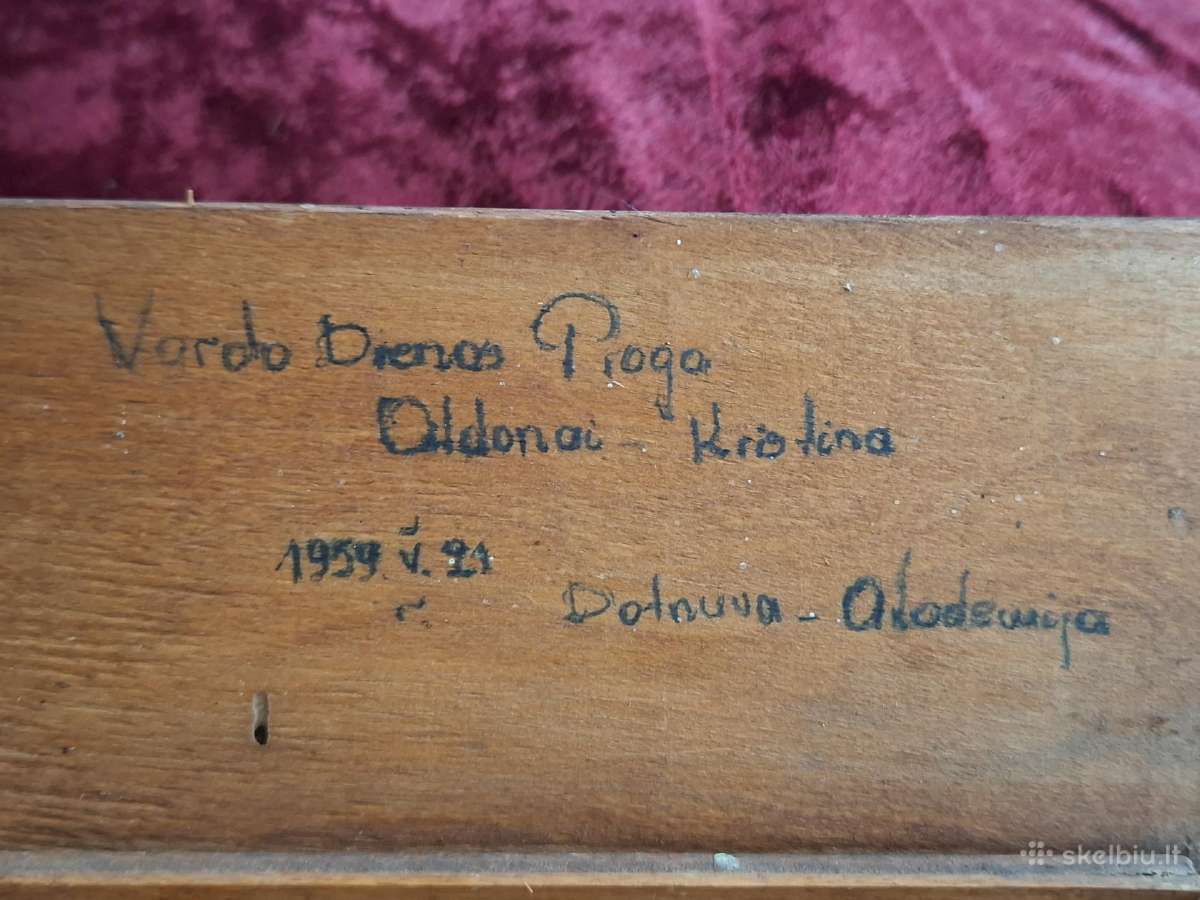 Vardo Dienos Proga
Aldonai - Kristina
1959. V. 21
r.
Dotnuva - Akademija
skelbiu.lt